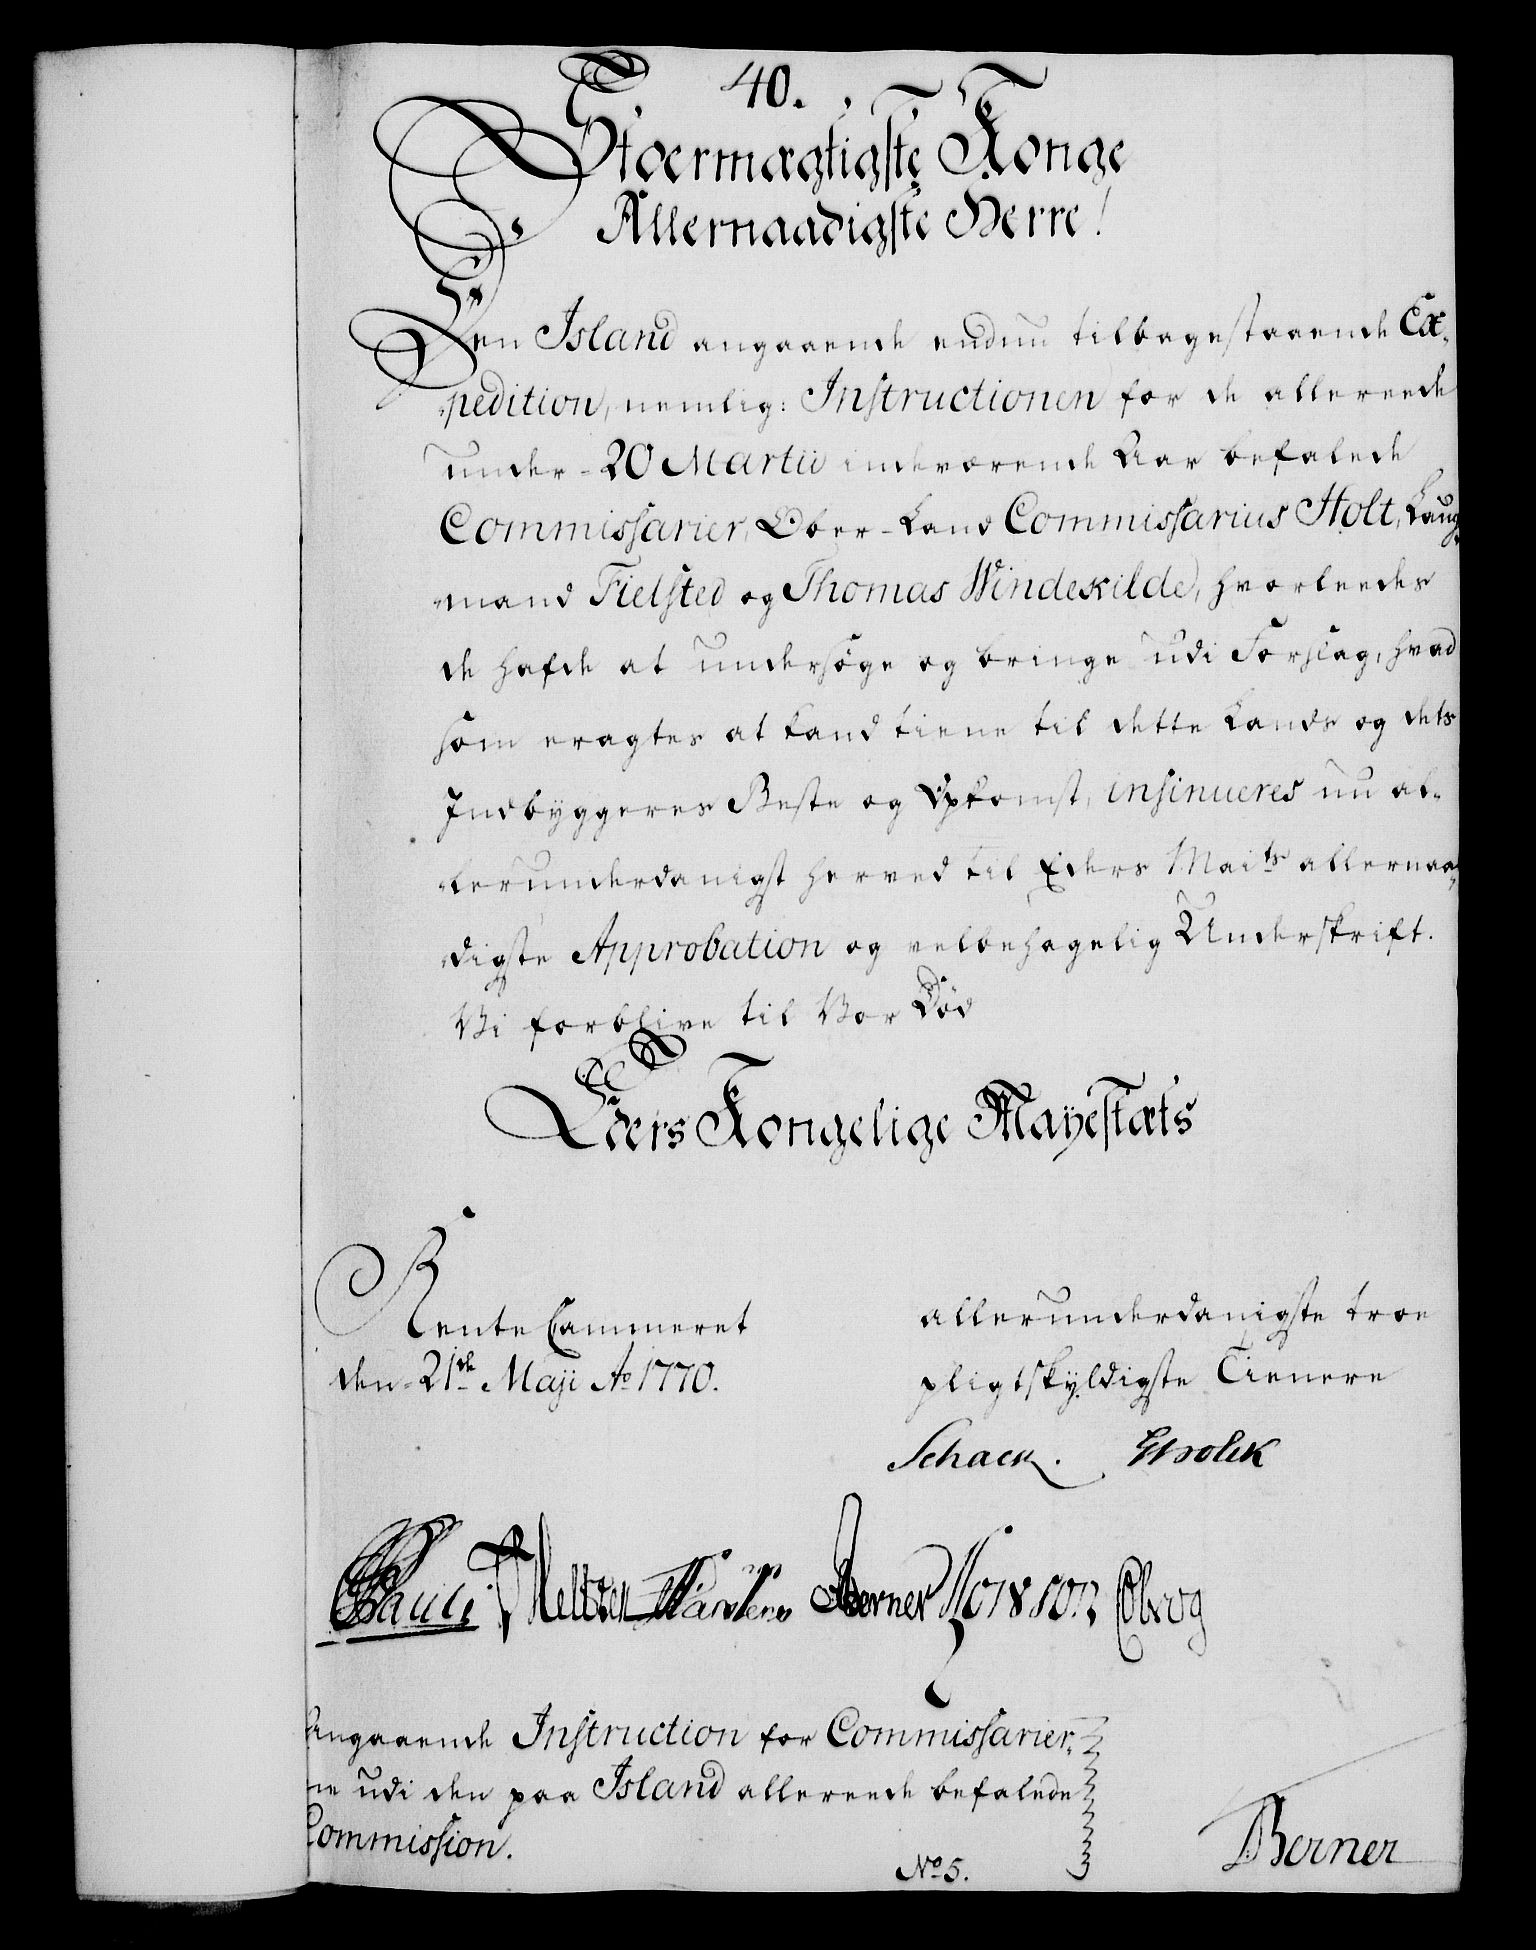 40.
Stoermægtigste Konge
Allernaadigste Herre!
Den Island angaaende endnu tilbagestaaende Ex-
pedition, nemlig: Instructionen for de allereede
under 20 Martii indeværende Aar befalede
Commissarier, Ober-Land Commissarius Holt, Laug-
mand Fielsted og Thomas Windekilde, hvorleedes
de hafde at undersøge og bringe udi Forslag, hvad
som eragtes at kand tiene til dette Lands og dets
Indbyggeres Beste og Opkomst, insinueres nu al-
lerunderdanigst herved til Eders Maits allernaa-
digste Approbation og velbehagelig Underskrift.
Vi forblive til Vor Død
Eders Kongelige Mayestæts
Rente Cammeret
den 21de Maji Ao 1770.
allerunderdanigste troe
pligtskyldigste Tienere
Schack.
Pauli Berner
Angaaende Instruction for Commissarier-
ne udi den paa Island allereede befalede
Commission.
No 5.
Berner